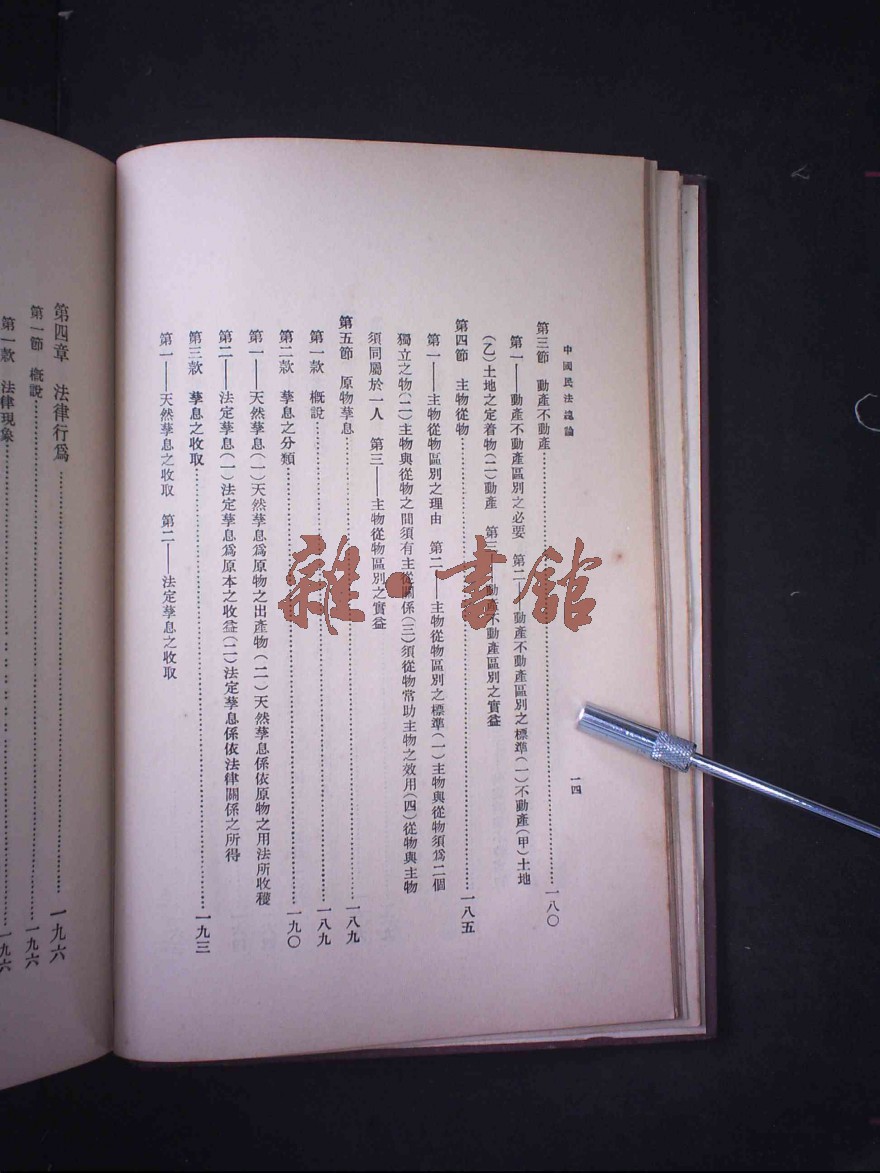 中國民法總論
一四
第三節 動產不動產……一八〇
第一——動產不動產區別之必要 第二——動產不動產區別之標準(一)不動產(甲)土地
(乙)土地之定着物(二)動產 第三——動產不動產區別之實益
第四節 主物從物……一八五
第一——主物從物區別之理由 第二——主物從物區別之標準(一)主物與從物須爲二個
獨立之物(二)主物與從物之間須有主從關係(三)須從物常助主物之效用(四)從物與主物
須同屬於一人 第三——主物從物區別之實益
第五節 原物孳息……一八九
第一款 概說……一八九
第二款 孳息之分類……一九〇
第一——天然孳息(一)天然孳息爲原物之出產物(二)天然孳息係依原物之用法所收穫
第二——法定孳息(一)法定孳息爲原本之收益(二)法定孳息係依法律關係之所得
第三款 孳息之收取……一九三
第一——天然孳息之收取 第二——法定孳息之收取
第四章 法律行爲……一九六
第一節 概說……一九六
第一款 法律現象……一九六
雜·書館